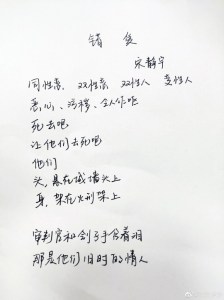 错爱
宋静宇
同性恋 双性恋 双性人 变性人
恶心、污秽、令人作呕
死去吧
让他们去死吧
他们
头,悬在城墙头上
身,架在火刑架上
审判官和刽子手含着泪
那是他们旧时的情人